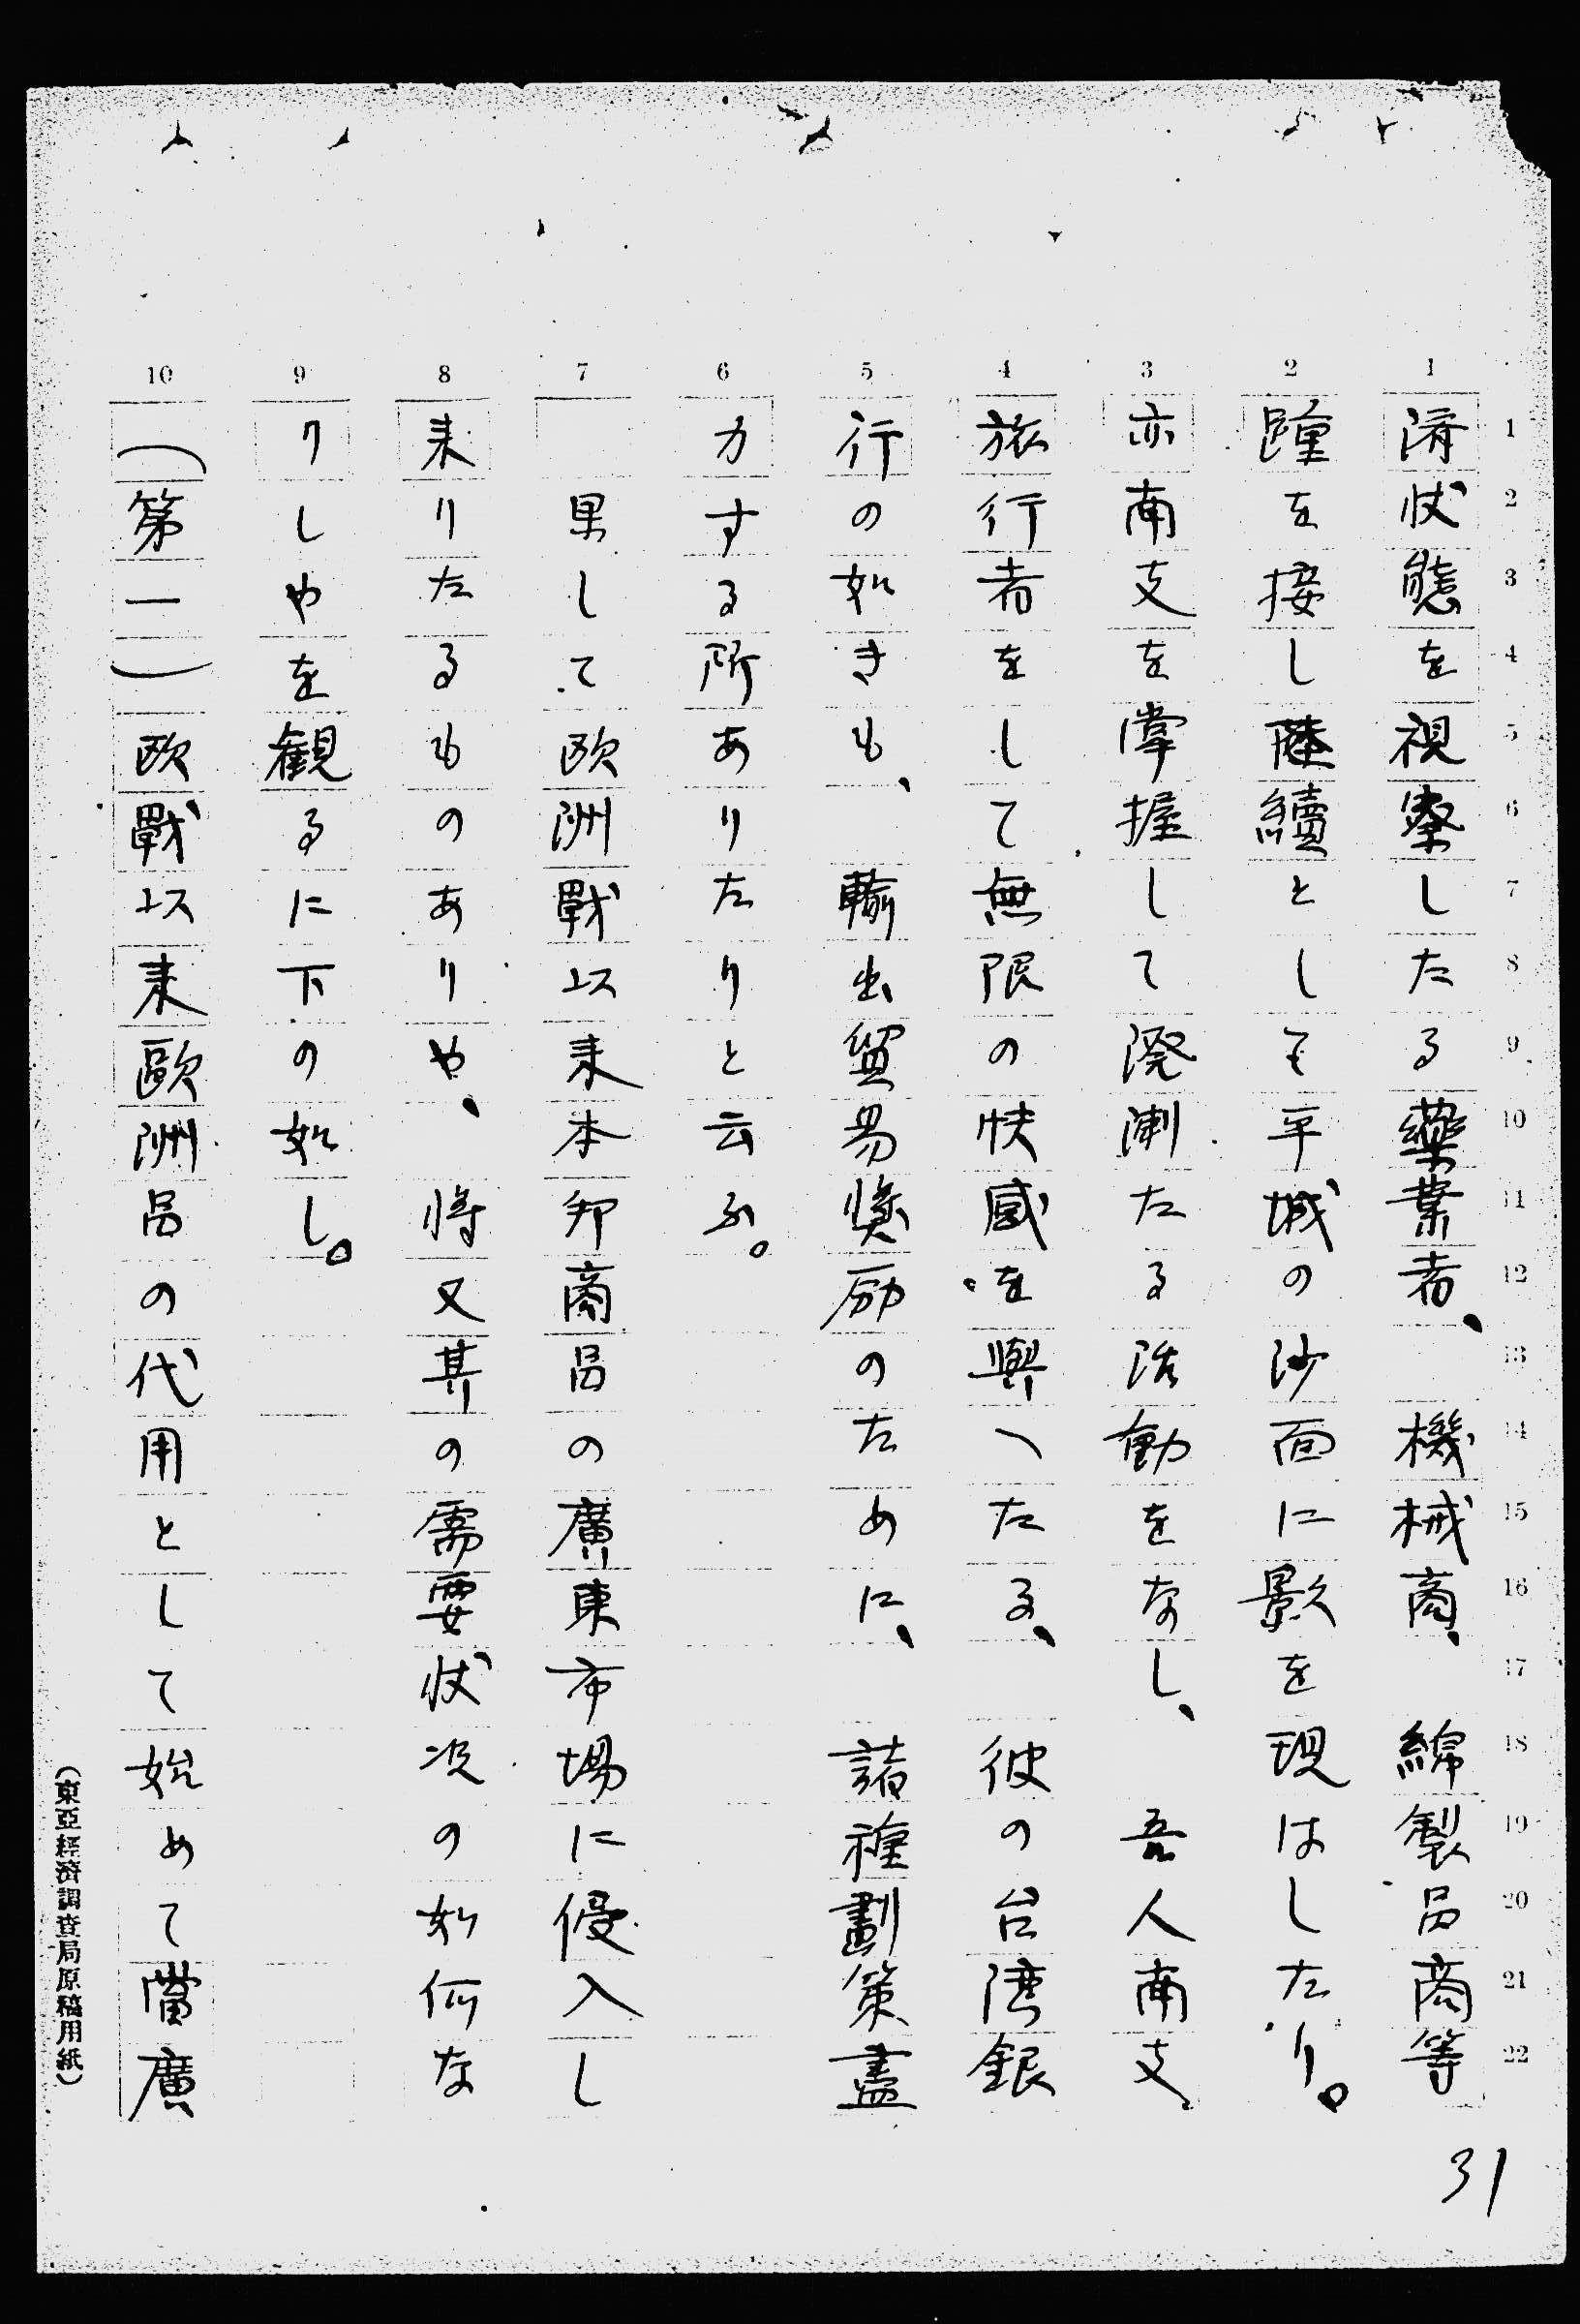 済状態を視察したる藥業者、機械商、綿製品商等
踵を接し陸續として羊城の沙面に影を現はしたり。
亦南支を掌握して溌溂たる活動をなし、吾人南支
旅行者をして無限の快感を與へたる、彼の台湾銀
行の如きも、輸出貿易奬励のために、諸種劃策盡
力する所ありたりと云ふ。
果して欧洲戰以来本邦商品の廣東市場に侵入し
来りたるものありや、将又其の需要状况の如何な
りしやを観るに下の如し。
(第一)欧戰以来歐洲品の代用として始めて當廣
(東亞經濟調査局原稿用紙)
1 2 3 4 5 6 7 8 9 10
1 2 3 4 5 6 7 8 9 10 11 12 13 14 15 16 17 18 19 20 21 22
31